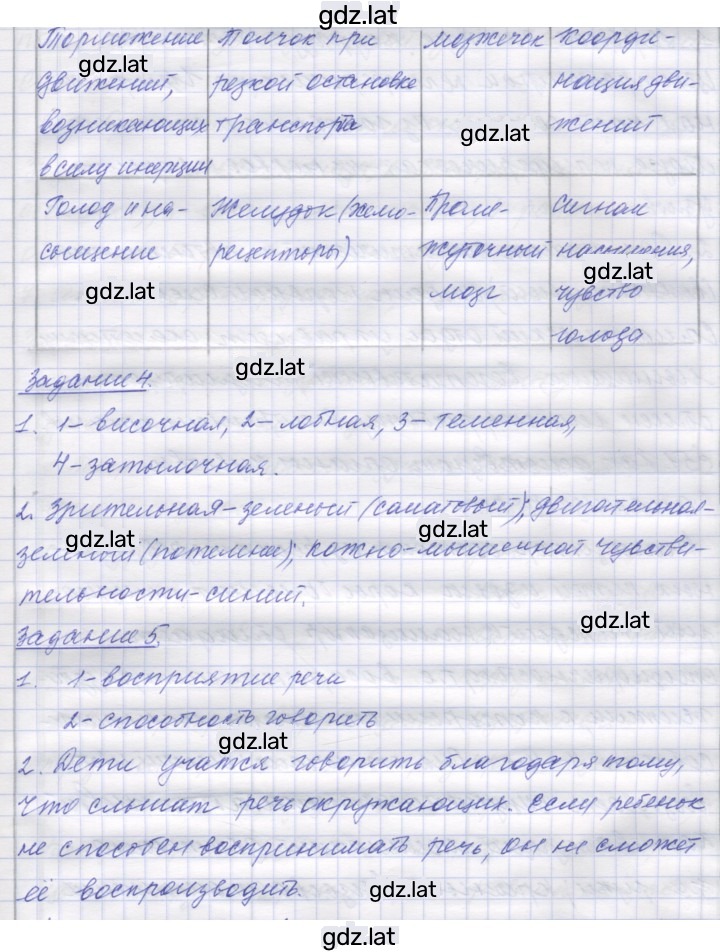 gdz.lat
Торможение Толчок при мозжечок Коорди-
gdz.lat
движений, резкой остановке нация дви-
возникающих транспорта жений
gdz.lat
в силу инерции
Голод и на- Желудок (хемо- Проме- сигнал
сыщение рецепторы) жуточный насыщения,
gdz.lat
gdz.lat
мозг чувство
голода
gdz.lat
Задание 4.
1. 1- височная, 2- лобная, 3- теменная,
4- затылочная.
2. Зрительная- зеленый (салатовый); двигательная-
gdz.lat gdz.lat
зеленый (потемнее); кожно-мышечной чувстви-
тельности- синий.
gdz.lat
Задание 5.
1. 1- восприятие речи
2- способность говорить
gdz.lat
2. Дети учатся говорить благодаря тому,
что слышат речь окружающих. Если ребенок
не способен воспринимать речь, он не сможет
её воспроизводить.
gdz.lat
gdz.lat